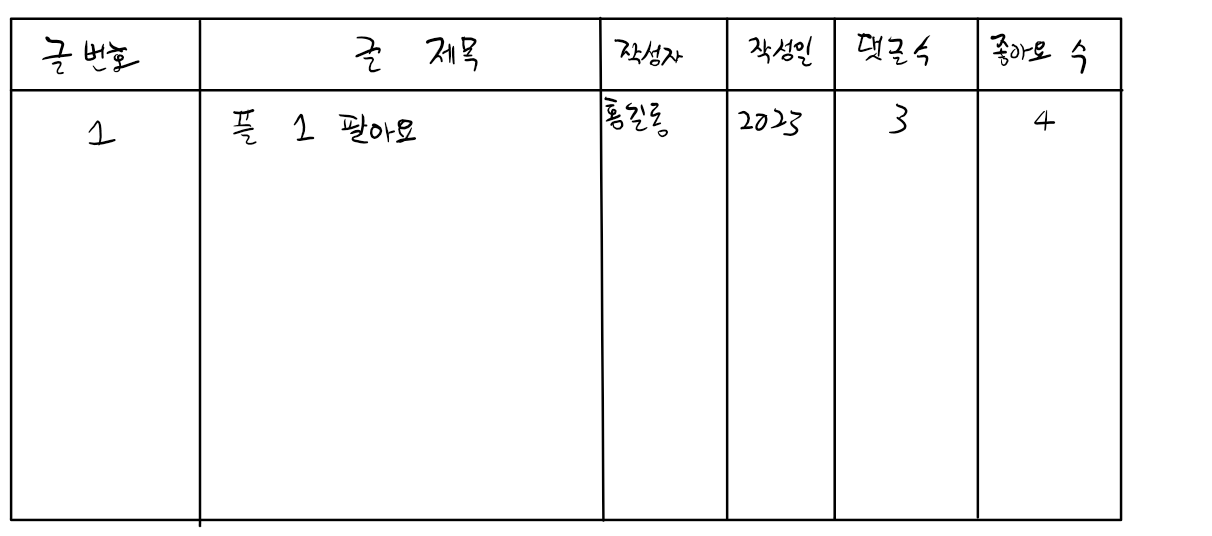 글 번호 글 제목 작성자 작성일 댓글수 좋아요 수
1 플 1 팔아요 홍길동 2023 3 4